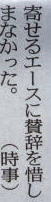 寄せるエースに賛辞を惜し
まなかった。（時事）